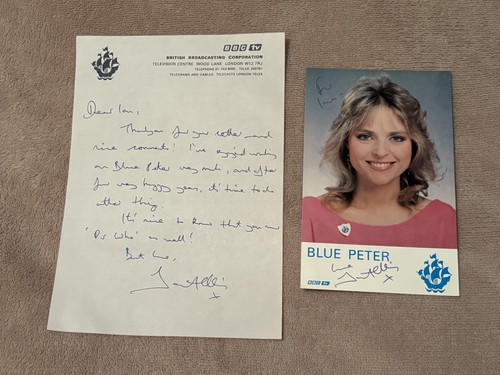 BBC tv
BRITISH BROADCASTING CORPORATION
TELEVISION CENTRE WOOD LANE LONDON W12 7RJ
TELEPHONE 01-743 8000 TELEX 265781
TELEGRAMS AND CABLES: TELECASTS LONDON TELEX
Dear Ian,
Thankyou for your letter and
nice comments! I've enjoyed working
on Blue Peter very much, and after
four very happy years, it's time to do
other things.
It's nice to know that you
'Dr Who' as well!
Best love,
x
BLUE PETER
love
x
BBC tv